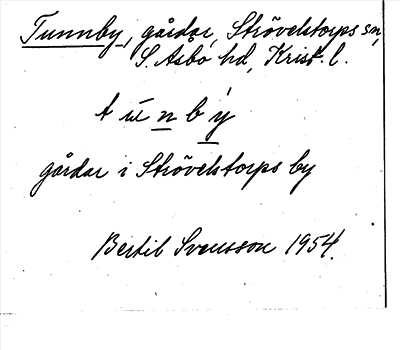 Tunnby, gårdar, Strövelstorps sn,
S. Åsbo hd, Krist. l.
t ú n b ý
gårdar i Strövelstorps by
Bertil Svensson 1954.